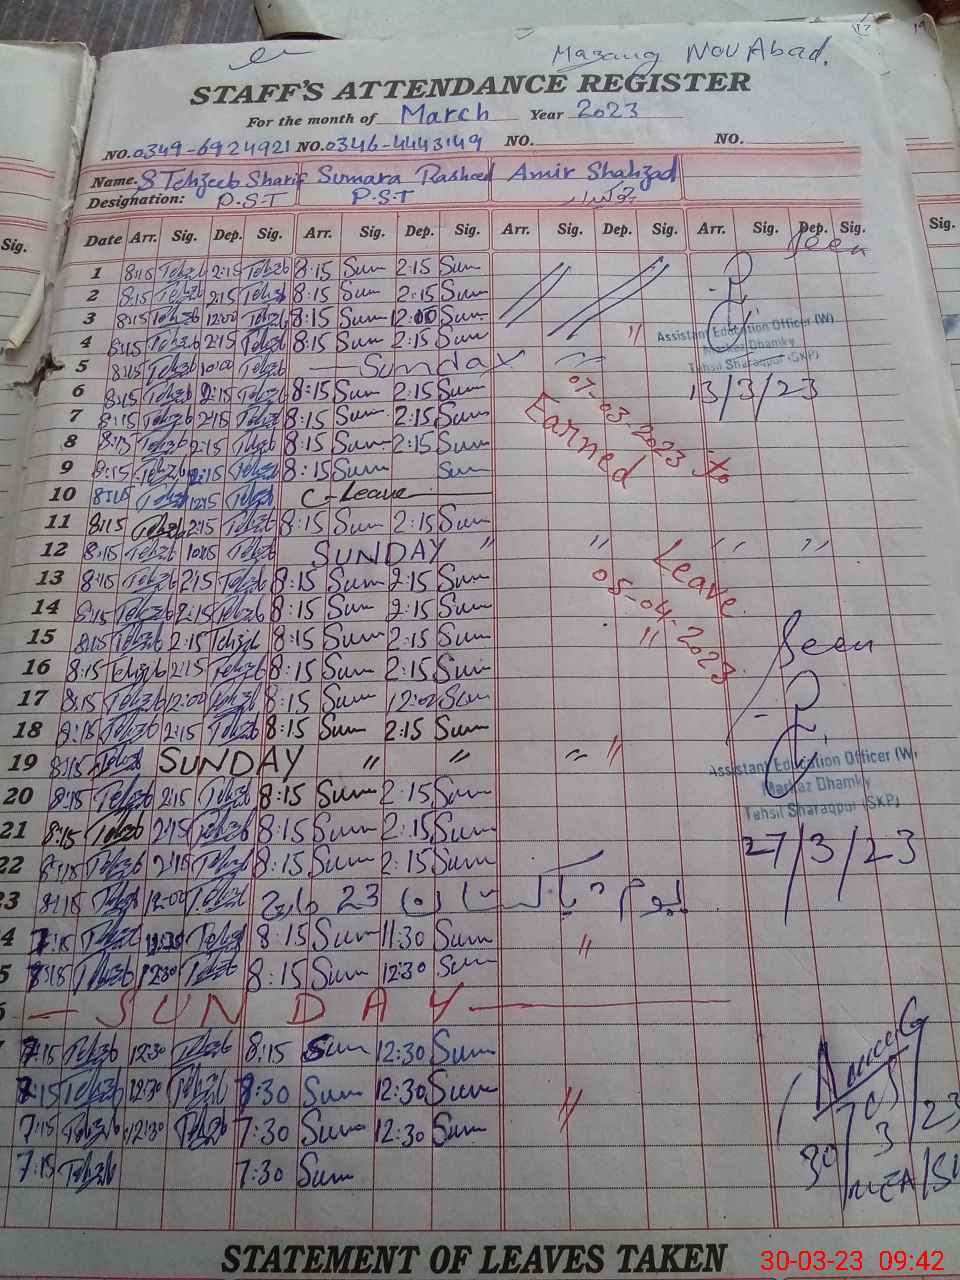 Mazang Nou Abad.
STAFF'S ATTENDANCE REGISTER
For the month of March Year 2023
NO. 0349-6924921 NO. 0346-4443149 NO. NO.
Name. S Tehzeeb Sharif Sumara Rasheed Amir Shahzad
Designation: P.S.T P.S.T چوکیدار
Sig. Date Arr. Sig. Dep. Sig. Arr. Sig. Dep. Sig. Arr. Sig. Dep. Sig. Arr. Sig. Dep. Sig. Sig.
Seen
1 8:15 Tehzb 2:15 Tehzb 8:15 Sum 2:15 Sum
2 8:15 Tehzb 2:15 Tehzb 8:15 Sum 2:15 Sum
3 8:15 Tehzb 12:00 Tehzb 8:15 Sum 12:00 Sum
4 8:15 Tehzb 2:15 Tehzb 8:15 Sum 2:15 Sum "
Assistant Education Officer (W)
Markaz Dhamky
Tehsil Sharaqpur (SKP)
5 8:15 Tehzb 10:00 Tehzb — Sunday " 
13/3/23
6 8:15 Tehzb 2:15 Tehzb 8:15 Sum 2:15 Sum
07-03-2023 to
Earned
7 8:15 Tehzb 2:15 Tehzb 8:15 Sum 2:15 Sum
8 8:15 Tehzb 2:15 Tehzb 8:15 Sum 2:15 Sum
9 8:15 Tehzb 2:15 Tehzb 8:15 Sum Sum
10 8:15 Tehzb 12:15 Tehzb C-Leave
11 8:15 Tehzb 2:15 Tehzb 8:15 Sum 2:15 Sum
12 8:15 Tehzb Tehzb SUNDAY " " " "
Leave
05-04-2023
13 8:15 Tehzb 2:15 Tehzb 8:15 Sum 2:15 Sum
14 8:15 Tehzb 2:15 Tehzb 8:15 Sum 2:15 Sum
15 8:15 Tehzb 2:15 Tehzb 8:15 Sum 2:15 Sum "
Seen
16 8:15 Tehzb 2:15 Tehzb 8:15 Sum 2:15 Sum
17 8:15 Tehzb 12:00 Tehzb 8:15 Sum 12:00 Sum
18 8:15 Tehzb 2:15 Tehzb 8:15 Sum 2:15 Sum
19 8:15 Tehzb SUNDAY " " " "
Assistant Education Officer (W)
Markaz Dhamky
Tehsil Sharaqpur (SKP)
20 8:15 Tehzb 2:15 Tehzb 8:15 Sum 2:15 Sum
21 8:15 Tehzb 2:15 Tehzb 8:15 Sum 2:15 Sum
27/3/23
22 8:15 Tehzb 2:15 Tehzb 8:15 Sum 2:15 Sum
23 8:15 Tehzb 12:00 Tehzb یوم پاکستان 23 مارچ
4 7:15 Tehzb Tehzb 8:15 Sum 11:30 Sum "
5 Tehzb 12:30 Tehzb 8:15 Sum 12:30 Sum
— SUNDAY —
7:15 Tehzb 12:30 Tehzb 8:15 Sum 12:30 Sum
7:15 Tehzb 12:30 Tehzb 7:30 Sum 12:30 Sum "
7:15 Tehzb 12:30 Tehzb 7:30 Sum 12:30 Sum
7:15 Tehzb 7:30 Sum
30/3/23
MEA/
STATEMENT OF LEAVES TAKEN
30-03-23 09:42